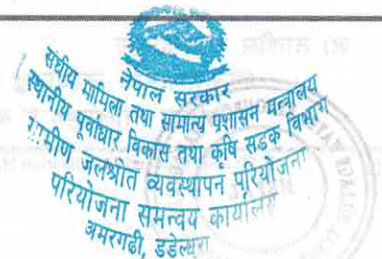 नेपाल सरकार
संघीय मामिला तथा सामान्य प्रशासन मन्त्रालय
स्थानीय पूर्वाधार विकास तथा कृषि सडक विभाग
ग्रामीण जलश्रोत व्यवस्थापन परियोजना
परियोजना समन्वय कार्यालय
अमरगढी, डडेल्धुरा